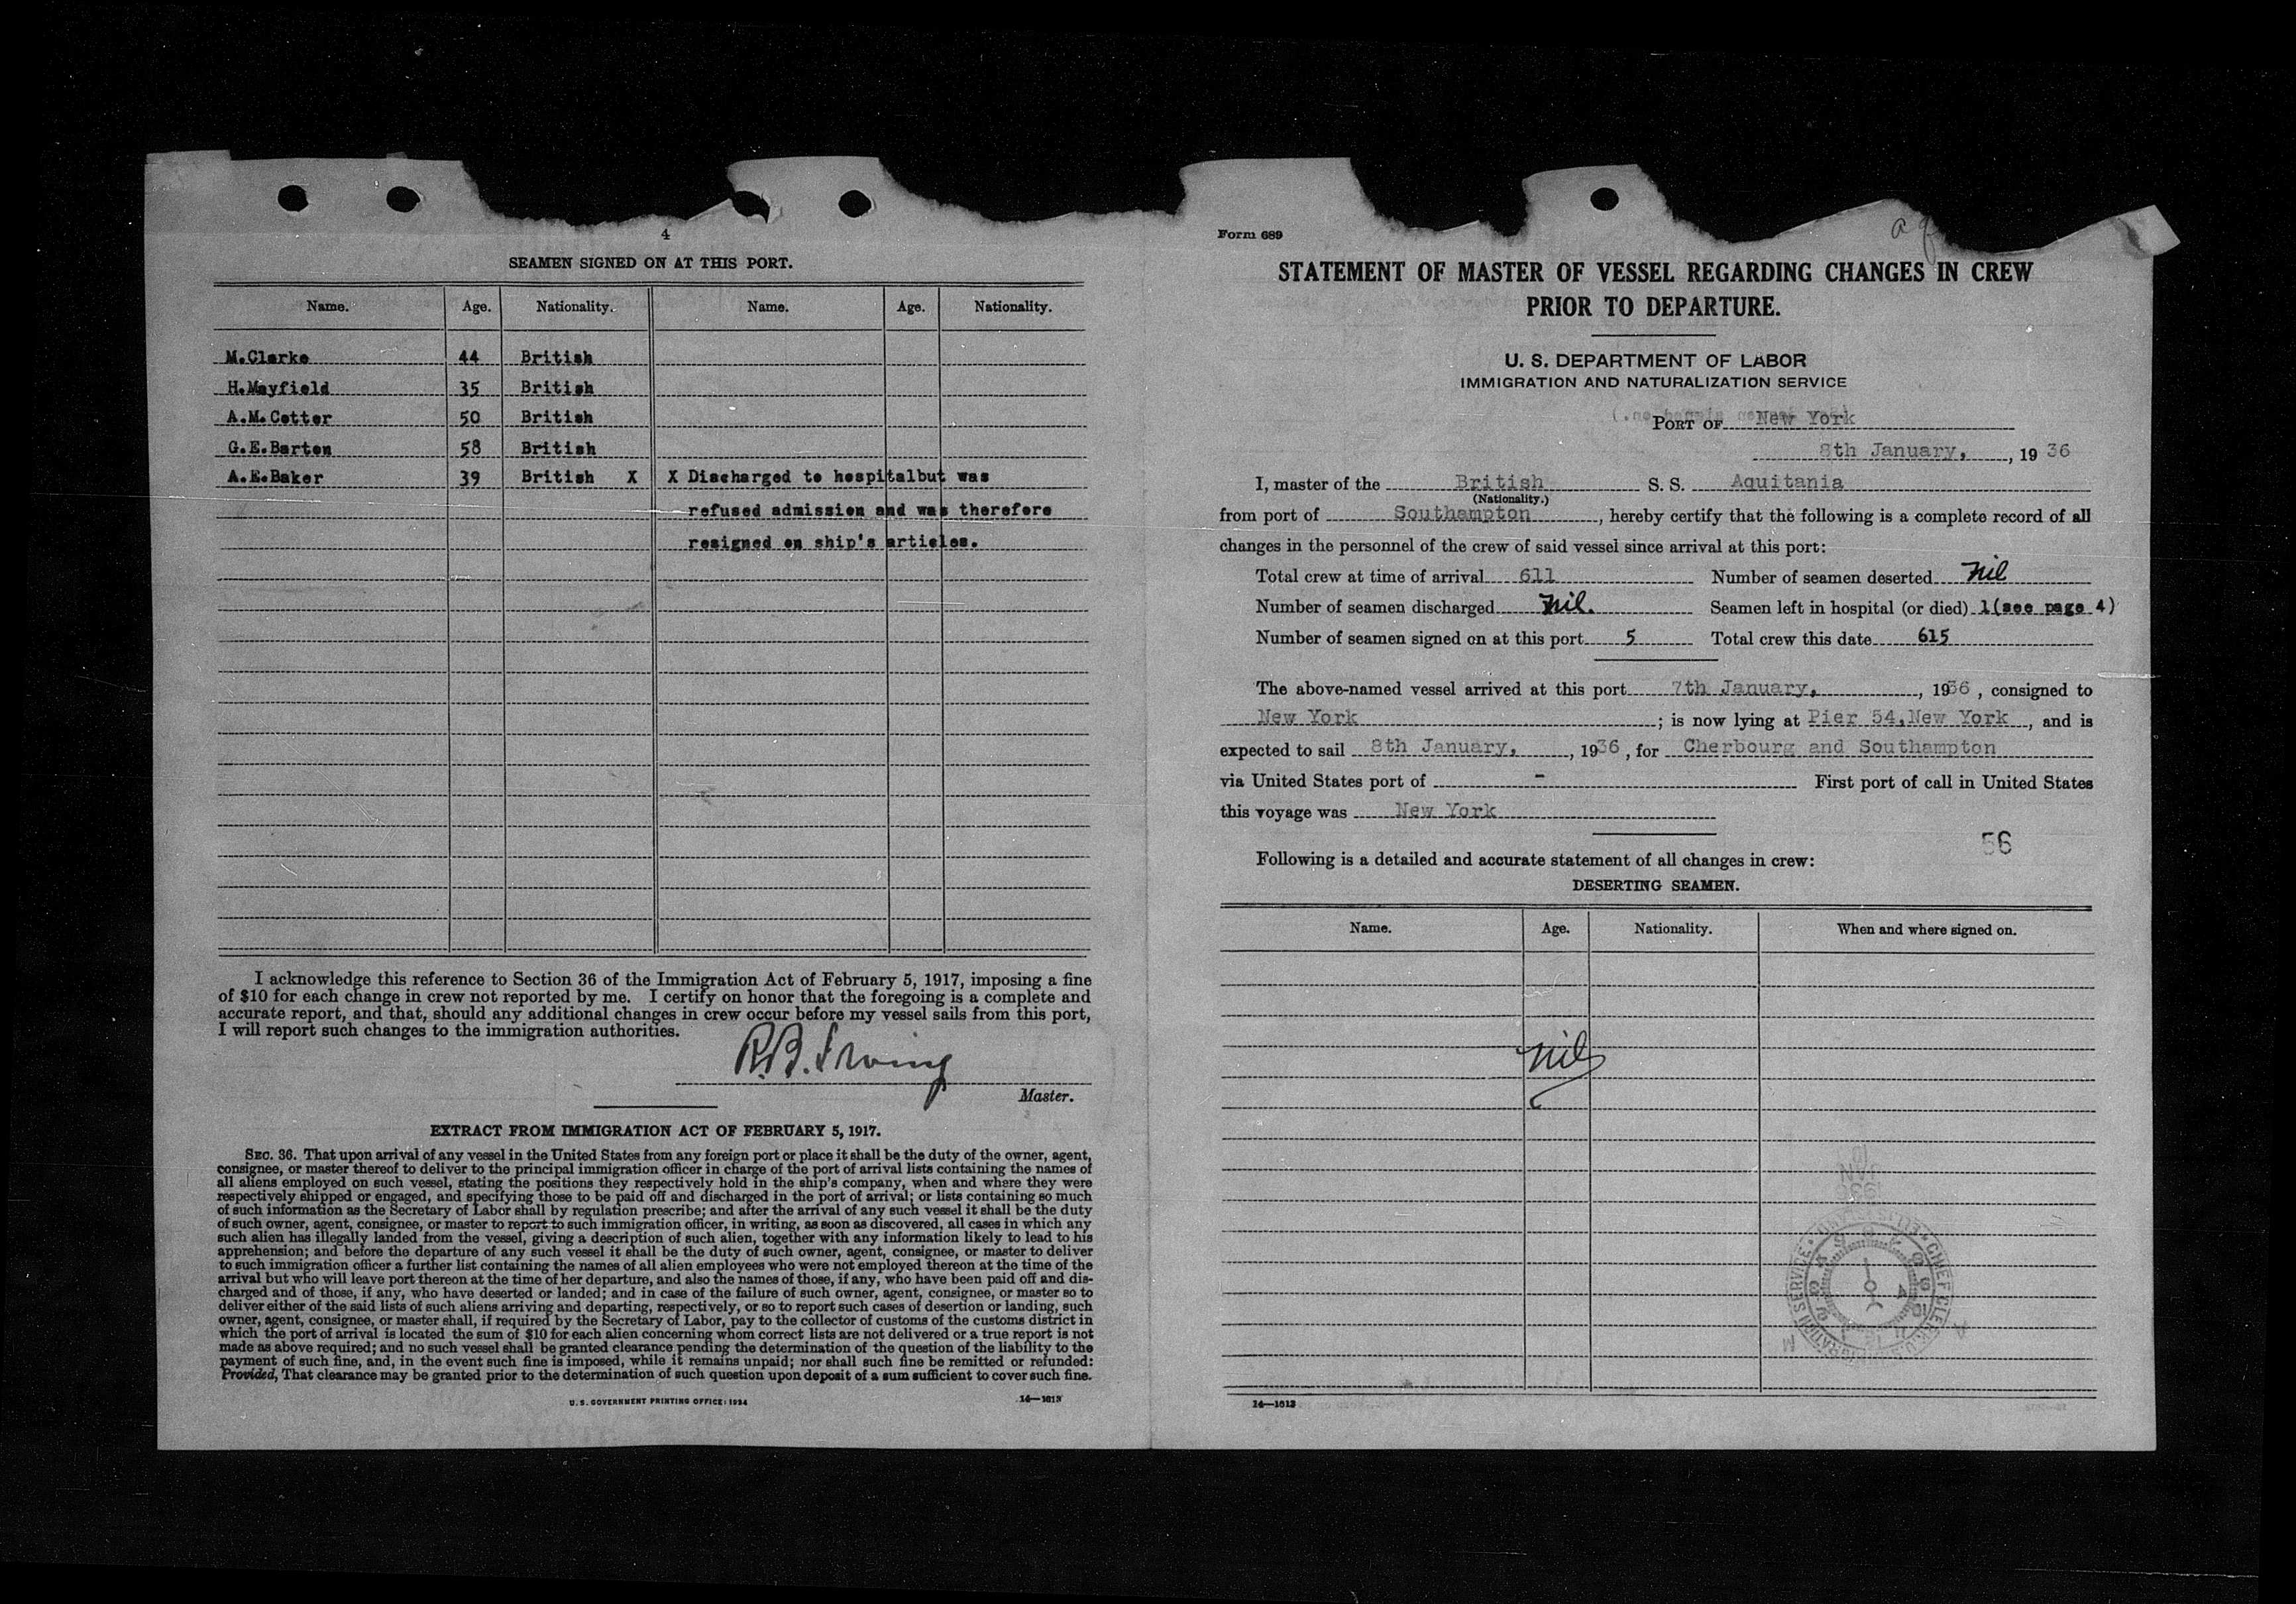 4
SEAMEN SIGNED ON AT THIS PORT.
Name. Age. Nationality. Name. Age. Nationality.
M.Clarke 44 British
H.Mayfield 35 British
A.M.Cotter 50 British
G.E.Barton 58 British
A.E.Baker 39 British X X Discharged to hospitalbut was
refused admission and was therefore
resigned on ship's articles.
I acknowledge this reference to Section 36 of the Immigration Act of February 5, 1917, imposing a fine
of $10 for each change in crew not reported by me. I certify on honor that the foregoing is a complete and
accurate report, and that, should any additional changes in crew occur before my vessel sails from this port,
I will report such changes to the immigration authorities.
R.B. Irving
Master.
EXTRACT FROM IMMIGRATION ACT OF FEBRUARY 5, 1917.
SEC. 36. That upon arrival of any vessel in the United States from any foreign port or place it shall be the duty of the owner, agent,
consignee, or master thereof to deliver to the principal immigration officer in charge of the port of arrival lists containing the names of
all aliens employed on such vessel, stating the positions they respectively hold in the ship's company, when and where they were
respectively shipped or engaged, and specifying those to be paid off and discharged in the port of arrival; or lists containing so much
of such information as the Secretary of Labor shall by regulation prescribe; and after the arrival of any such vessel it shall be the duty
of such owner, agent, consignee, or master to report to such immigration officer, in writing, as soon as discovered, all cases in which any
such alien has illegally landed from the vessel, giving a description of such alien, together with any information likely to lead to his
apprehension; and before the departure of any such vessel it shall be the duty of such owner, agent, consignee, or master to deliver
to such immigration officer a further list containing the names of all alien employees who were not employed thereon at the time of the
arrival but who will leave port thereon at the time of her departure, and also the names of those, if any, who have been paid off and dis-
charged and of those, if any, who have deserted or landed; and in case of the failure of such owner, agent, consignee, or master so to
deliver either of the said lists of such aliens arriving and departing, respectively, or so to report such cases of desertion or landing, such
owner, agent, consignee, or master shall, if required by the Secretary of Labor, pay to the collector of customs of the customs district in
which the port of arrival is located the sum of $10 for each alien concerning whom correct lists are not delivered or a true report is not
made as above required; and no such vessel shall be granted clearance pending the determination of the question of the liability to the
payment of such fine, and, in the event such fine is imposed, while it remains unpaid; nor shall such fine be remitted or refunded:
Provided, That clearance may be granted prior to the determination of such question upon deposit of a sum sufficient to cover such fine.
U. S. GOVERNMENT PRINTING OFFICE: 1934 14—1613
Form 689
STATEMENT OF MASTER OF VESSEL REGARDING CHANGES IN CREW
PRIOR TO DEPARTURE.
U. S. DEPARTMENT OF LABOR
IMMIGRATION AND NATURALIZATION SERVICE
PORT OF New York
8th January, , 19 36
I, master of the British S. S. Aquitania
(Nationality.)
from port of Southampton , hereby certify that the following is a complete record of all
changes in the personnel of the crew of said vessel since arrival at this port:
Total crew at time of arrival 611 Number of seamen deserted Nil
Number of seamen discharged Nil. Seamen left in hospital (or died) 1(see page 4)
Number of seamen signed on at this port 5 Total crew this date 615
The above-named vessel arrived at this port 7th January, , 1936 , consigned to
New York ; is now lying at Pier 54,New York , and is
expected to sail 8th January, , 1936 , for Cherbourg and Southampton
via United States port of - First port of call in United States
this voyage was New York
56
Following is a detailed and accurate statement of all changes in crew:
DESERTING SEAMEN.
Name. Age. Nationality. When and where signed on.
Nil
14—1613